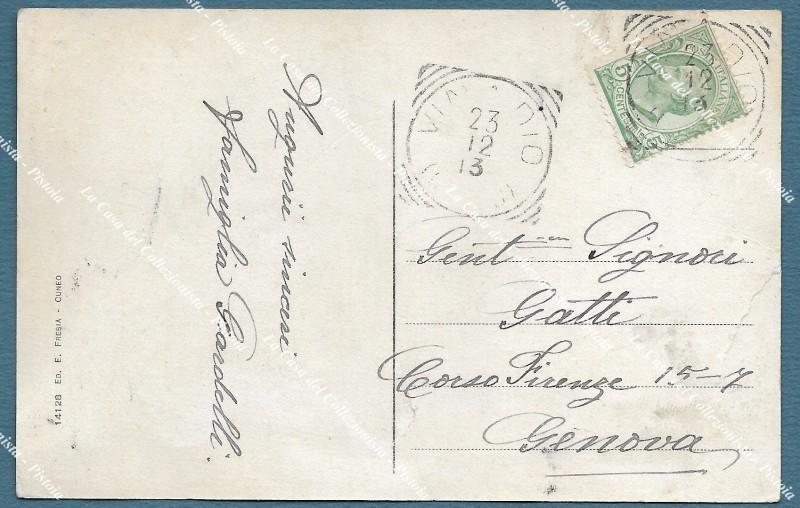 Augurii sinceri
Famiglia Gardelli.
14128 ED. E. FRESIA - CUNEO
VINADIO
23
12
13
23
12
13
5
CENTESIMI
ITALIANE
Gent.me Signori
Gatti
Corso Firenze 15-7
Genova
La Casa del Collezionista - Pistoia